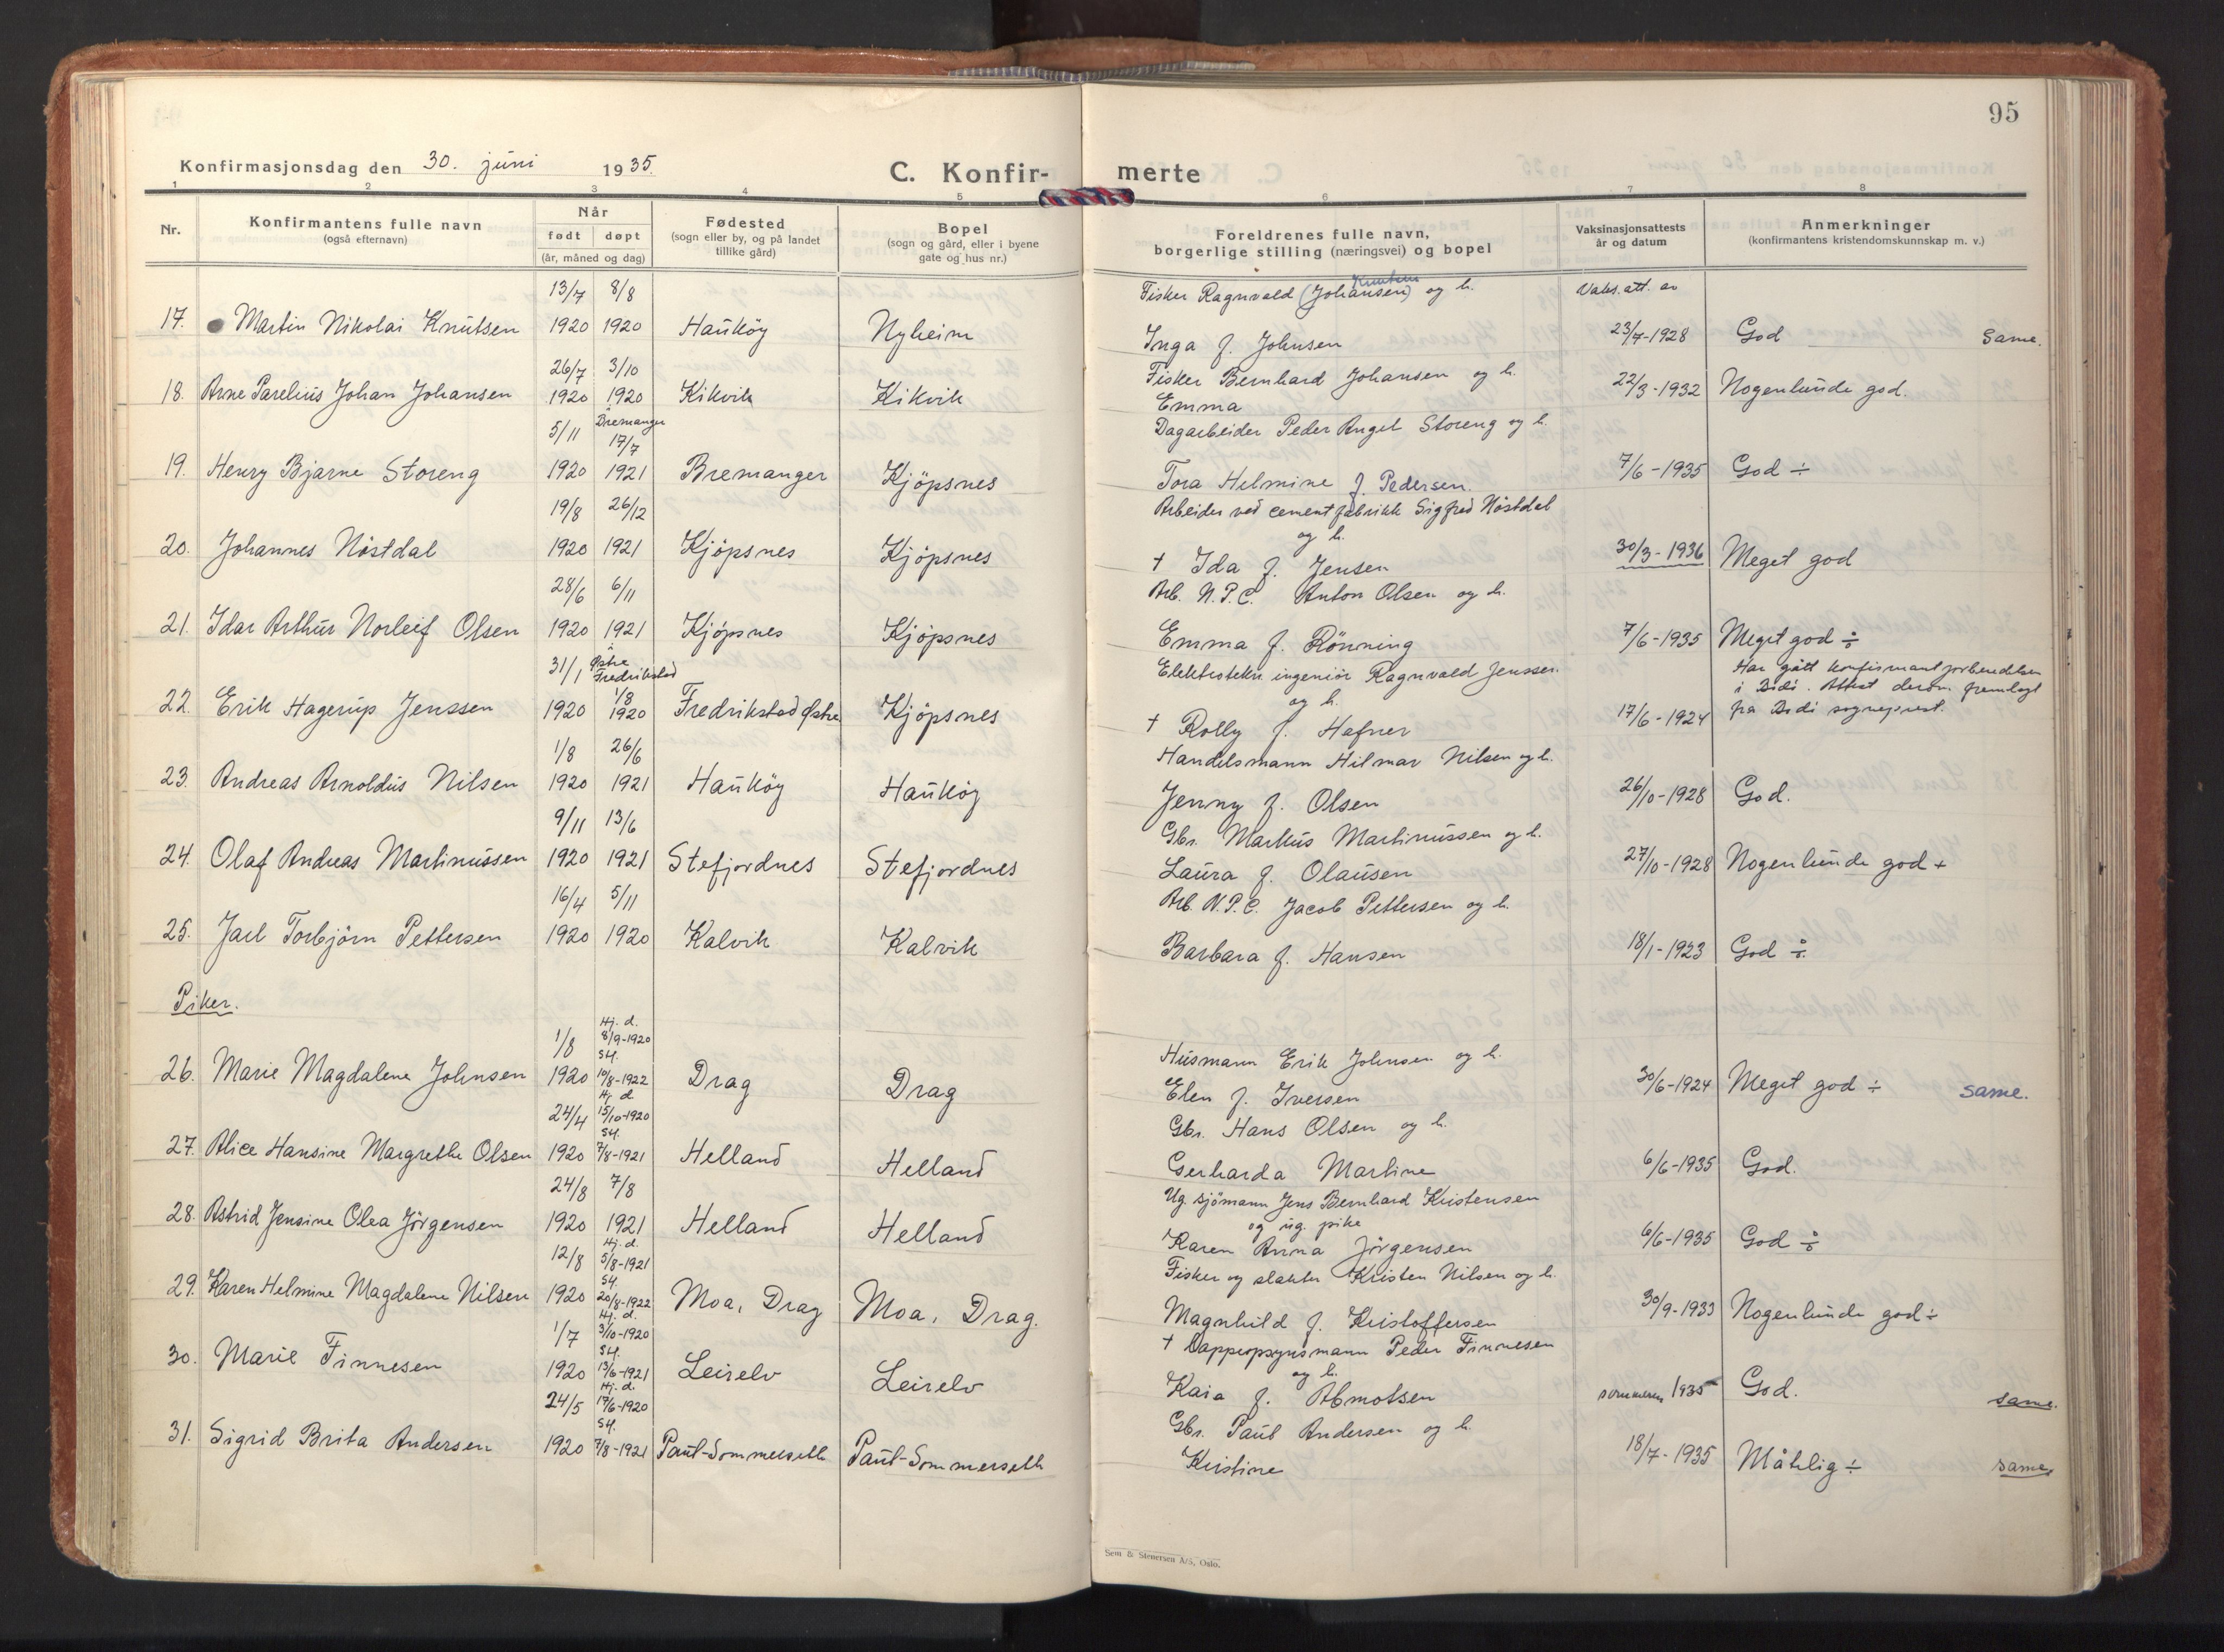 95
Konfirmasjonsdag den 30. juni 1935.
C. Konfir- merte
1 2 3 4 5 6 7 8
Nr.
Konfirmantens fulle navn
(også efternavn)
Når
født døpt
(år, måned og dag)
Fødested
(sogn eller by, og på landet
tillike gård)
Bopel
(sogn og gård, eller i byene
gate og hus nr.)
Foreldrenes fulle navn,
borgerlige stilling (næringsvei) og bopel
Vaksinasjonsattests
år og datum
Anmerkninger
(konfirmantens kristendomskunnskap m. v.)
13/7 8/8 Fisker Ragnvald (Johansen) Knutsen og h. Vaks. att. av
17. Martin Nikolai Knutsen 1920 1920 Hauköy Nyheim Inga f. Johnsen 23/7-1928 God Same.
26/7 3/10 Fisker Bernhard Johansen og h.
18. Arne Parelius Johan Johansen 1920 1920 Kikvik Kikvik Emma 22/3-1932 Nogenlunde god.
5/11 Bremanger 17/7 Dagarbeider Peder Angel Storeng og h.
19. Henry Bjarne Storeng 1920 1921 Bremanger Kjöpsnes Tora Helmine f. Pedersen. 7/6-1935 God ÷
19/8 26/12 Arbeider ved cementfabrikk Sigfred Nöstdal og h.
20. Johannes Nöstdal 1920 1921 Kjöpsnes Kjöpsnes † Ida f. Jensen 30/3-1936 Meget god
28/6 6/11 Arb. N.P.C. Anton Olsen og h.
21. Idar Arthur Norleif Olsen 1920 1921 Kjöpsnes Kjöpsnes Emma f. Rönning 7/6-1935 Meget god ÷
31/1 Østre Fredrikstad 1/8 Elektrotekn. ingeniör Ragnvald Jenssen og h. Har gått konfirmantforberedelsen
i Bodö. Attest derom fremlagt
22. Erik Hagerup Jenssen 1920 1920 Fredrikstad Østre Kjöpsnes † Rolly f. Hafner 17/6-1924 fra Bodö sogneprest.
1/8 26/6 Handelsmann Hilmar Nilsen og h.
23. Andreas Arnoldus Nilsen 1920 1921 Hauköy Hauköy Jenny f. Olsen 26/10-1928 God.
9/11 13/6 Gbr. Markus Martinussen og h.
24. Olaf Andreas Martinussen 1920 1921 Stefjordnes Stefjordnes Laura f. Olausen 27/10-1928 Nogenlunde god +
16/4 5/11 Arb. N.P.C. Jacob Pettersen og h.
25. Jarl Torbjörn Pettersen 1920 1920 Kalvik Kalvik Barbara f. Hansen 18/1-1923 God ÷
Piker.
1/8 Hj. d. 8/9-1920 St. Husmann Erik Johnsen og h.
26. Marie Magdalene Johnsen 1920 10/8-1922 Drag Drag Elen f. Iversen 30/6-1924 Meget god ÷ same.
24/4 Hj. d. 15/10-1920 St. Gbr. Hans Olsen og h.
27. Alice Hansine Margrethe Olsen 1920 7/8-1921 Helland Helland Gerharda Martine 6/6-1935 God.
24/8 7/8 Ug. sjömann Jens Bernhard Kristensen og ug. pike
28. Astrid Jensine Olea Jörgensen 1920 1921 Helland Helland Karen Anna Jörgensen 6/6-1935 God ÷
12/8 Hj. d. 5/8-1921 St. Fisker og slakter Kristen Nilsen og h.
29. Karen Helmine Magdalene Nilsen 1920 20/8-1922 Moa, Drag Moa, Drag. Magnhild f. Kristoffersen 30/9-1933 Nogenlunde god ÷
1/7 Hj. d. 3/10-1920 St. † Oappsopsynsmann Peder Finnesen og h.
30. Marie Finnesen 1920 13/6-1921 Leirelv Leirelv Kaia f. Abmotsen sommeren 1935 God. same.
24/5 Hj. d. 17/6-1920 St. Gbr. Paul Andersen og h.
31. Sigrid Brita Andersen 1920 7/8-1921 Paul-Sommerseth Paul-Sommerseth Kristine 18/7-1935 Måtelig ÷ same.
Sem & Stenersen A/S, Oslo.